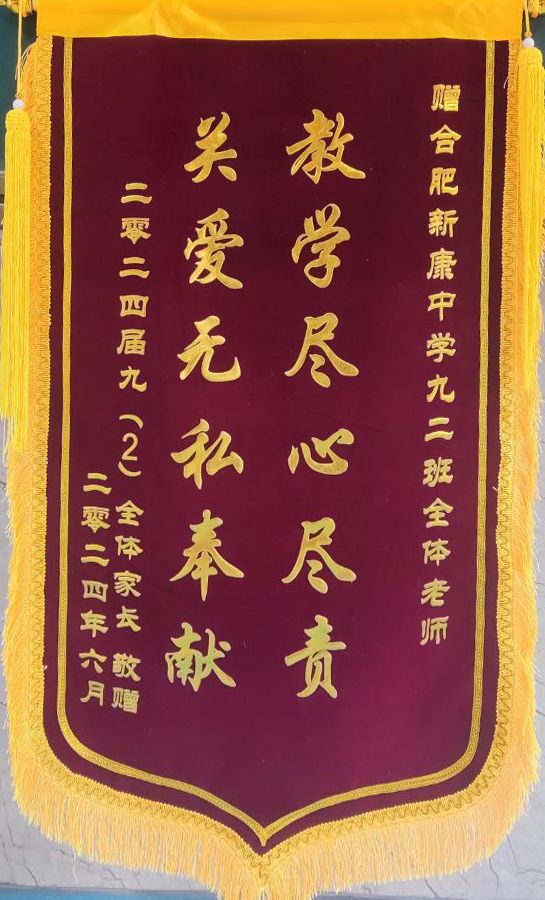 赠合肥新康中学九二班全体老师
教学尽心尽责
关爱无私奉献
二零二四届九(2)全体家长 敬赠
二零二四年六月